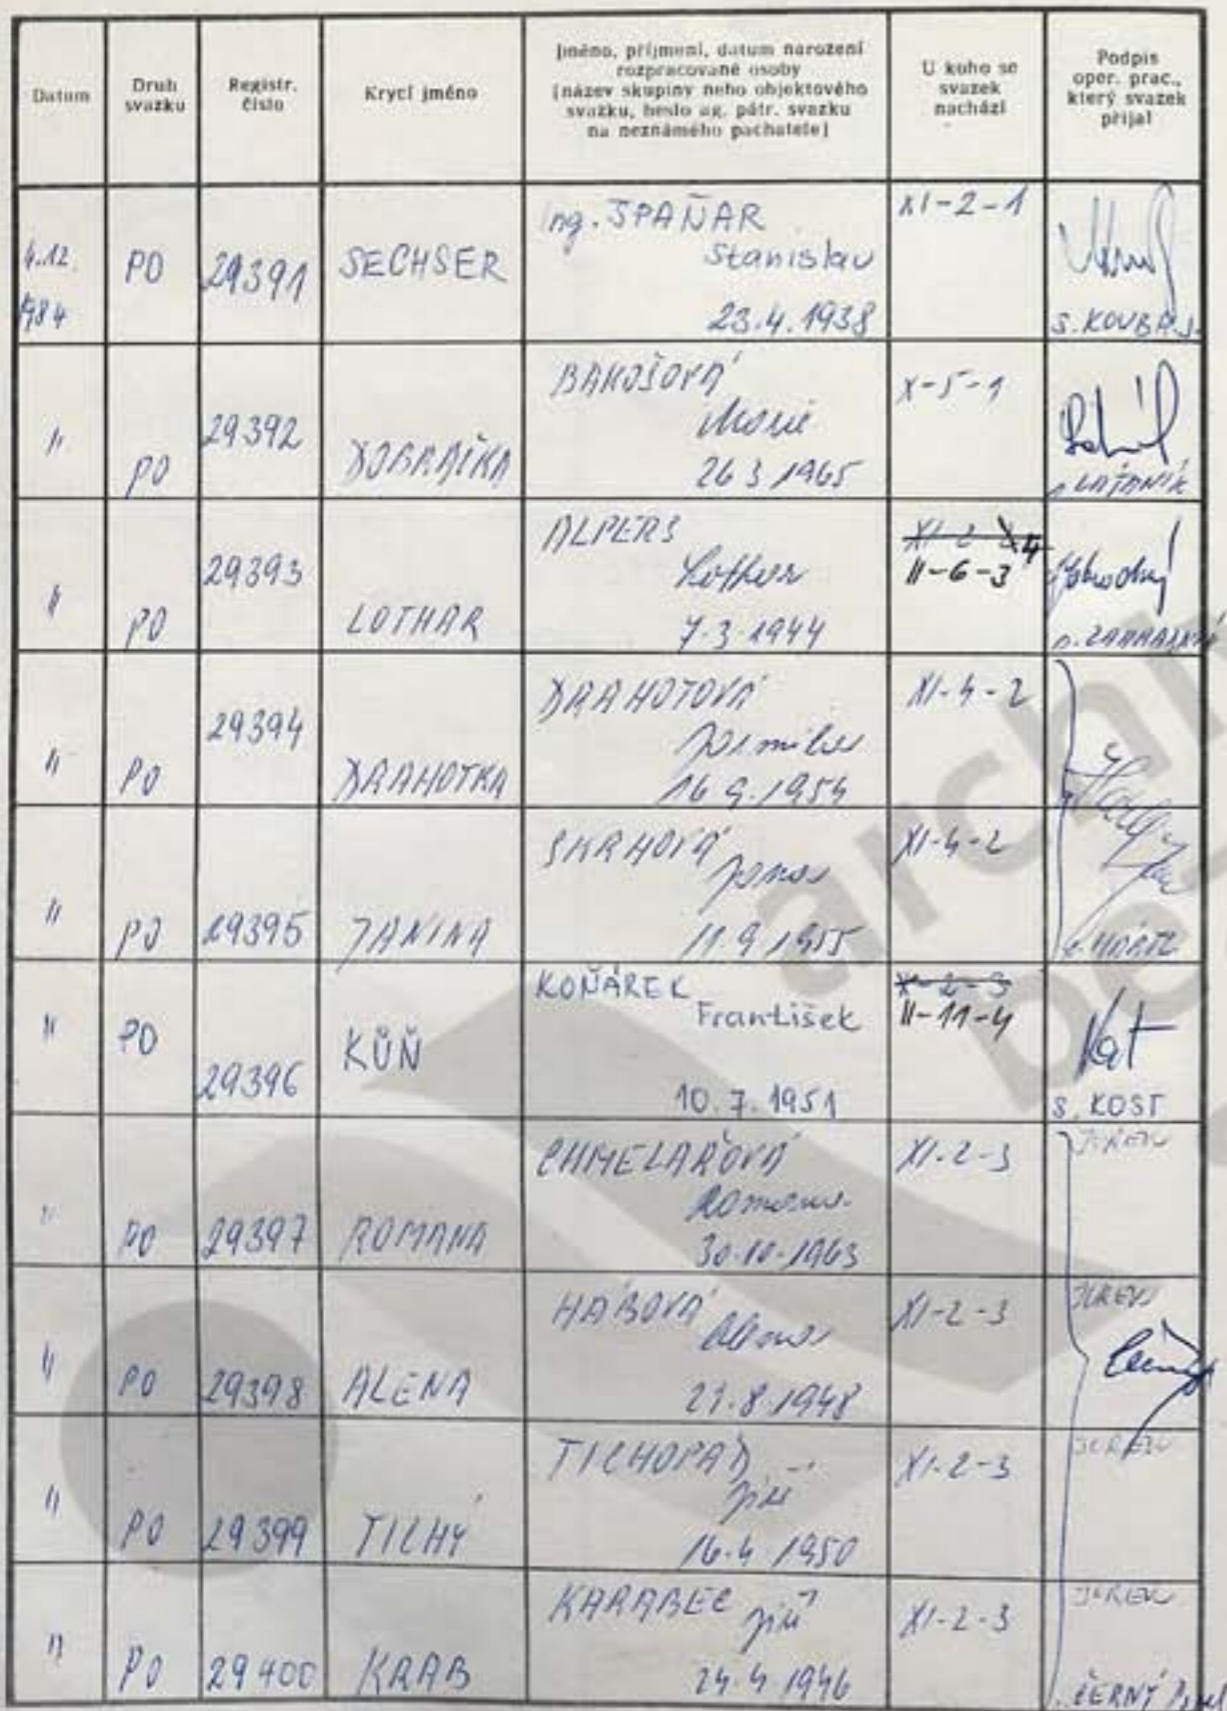 Datum
Druh
svazku
Registr.
číslo
Krycí jméno
Jméno, příjmení, datum narození
rozpracované osoby
(název skupiny nebo objektového
svazku, heslo ag. pátr. svazku
na neznámého pachatele)
U koho se
svazek
nachází
Podpis
oper. prac.,
který svazek
přijal
4.12.
1984
PO
29391
SECHSER
Ing. ŠPAŇAR
Stanislav
23.4.1938
XI-2-1
S. KOUBA J.
"
PO
29392
DOBRAČKA
BAKOŠOVÁ
Marie
26 3 1965
X-5-1
"
PO
29393
LOTHAR
ALPERS
Lothar
7.3.1944
XI-2
4
II-6-3
"
PO
29394
DRAHOTKA
DRAHOTOVÁ
Jarmila
16 9.1954
XI-4-2
"
PO
29395
JANINA
SKRHOVÁ
Jana
11.9.1955
XI-4-2
"
PO
29396
KŮŇ
KOŇÁREK
František
10.7.1951
XI-2-3
II-11-4
S. KOST
"
PO
29397
ROMANA
CHMELAŘOVÁ
Romana
30.10.1963
XI-2-3
"
PO
29398
ALENA
HÁBOVÁ
Alena
21.8.1948
XI-2-3
"
PO
29399
TICHÝ
TICHOPÁD
Jiří
16.4 1950
XI-2-3
"
PO
29400
KRAB
KARABEC Jiří
24.4 1946
XI-2-3
ČERNÝ Pavel